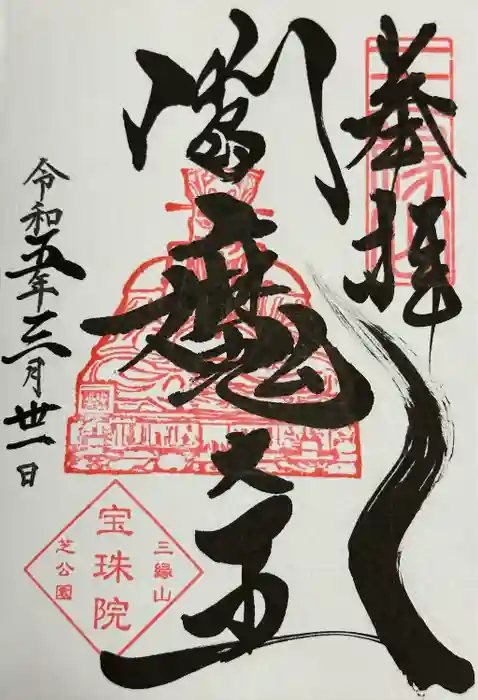 奉拝
閻魔大王
令和五年三月廿一日
三縁山
宝珠院
芝公園